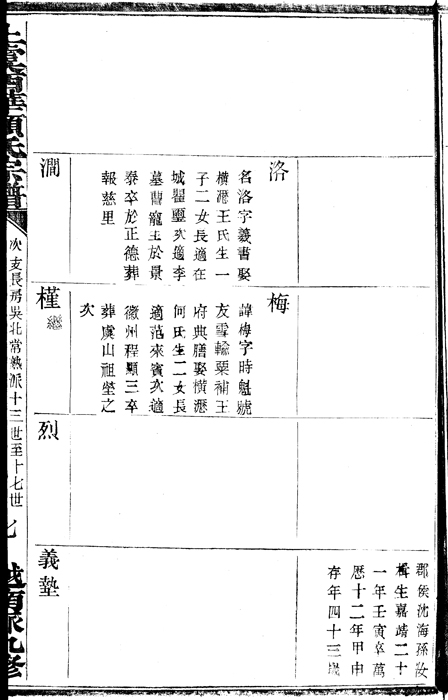 洛
名洛字羲書娶
橫瀝王氏生一
子二女長適在
城瞿璽次適李
墓曹寵王於景
泰卒於正德葬
報慈里
澗
梅
諱梅字時魁號
友雪輸粟補王
府典膳娶橫瀝
何氏生二女長
適范來賓次適
徽州程顯三卒
葬虞山祖塋之
次
槿
繼
烈
郡侯沈海孫汝
楫生嘉靖二十
一年壬寅卒萬
曆十二年甲申
存年四十三歲
義塾
顧氏宗譜
次支長房吳北常熟派十三世至十七世